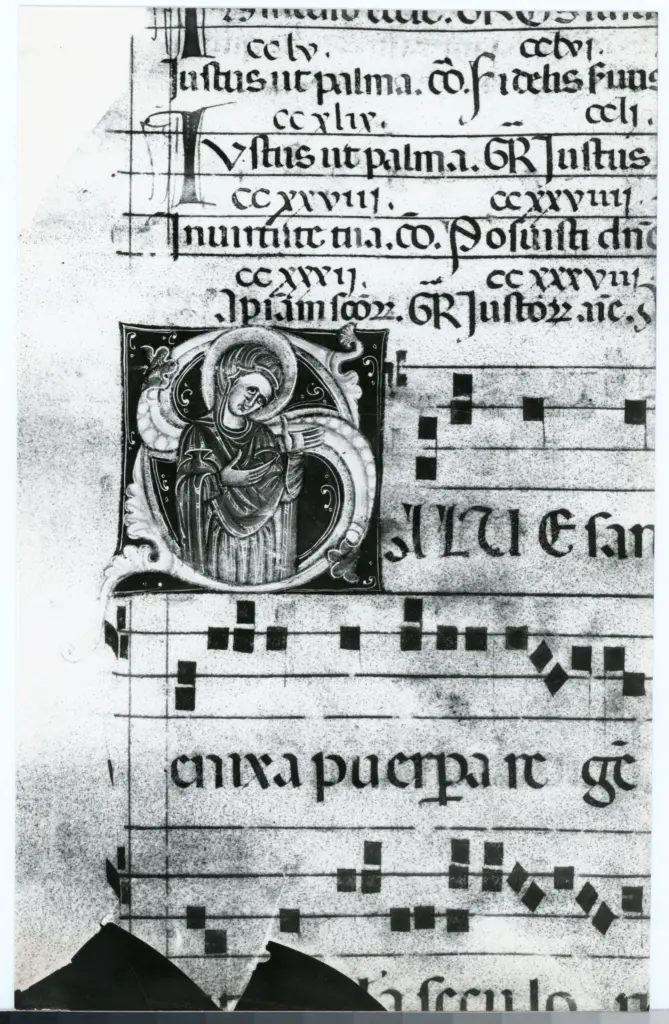 cclv. cclvi.
Justus ut palma. c̄o. Fidelis
ccxlix. ccli.
Ivstus ut palma. GR̄ Justus
ccxxviiii. ccxxxviiii.
In uirtute tua. c̄o. Posuisti dn̄e
ccxxxii. ccxxxviiii
GR̄ Justoꝝ
SALVE san
enixa puerpa re gē
secculo